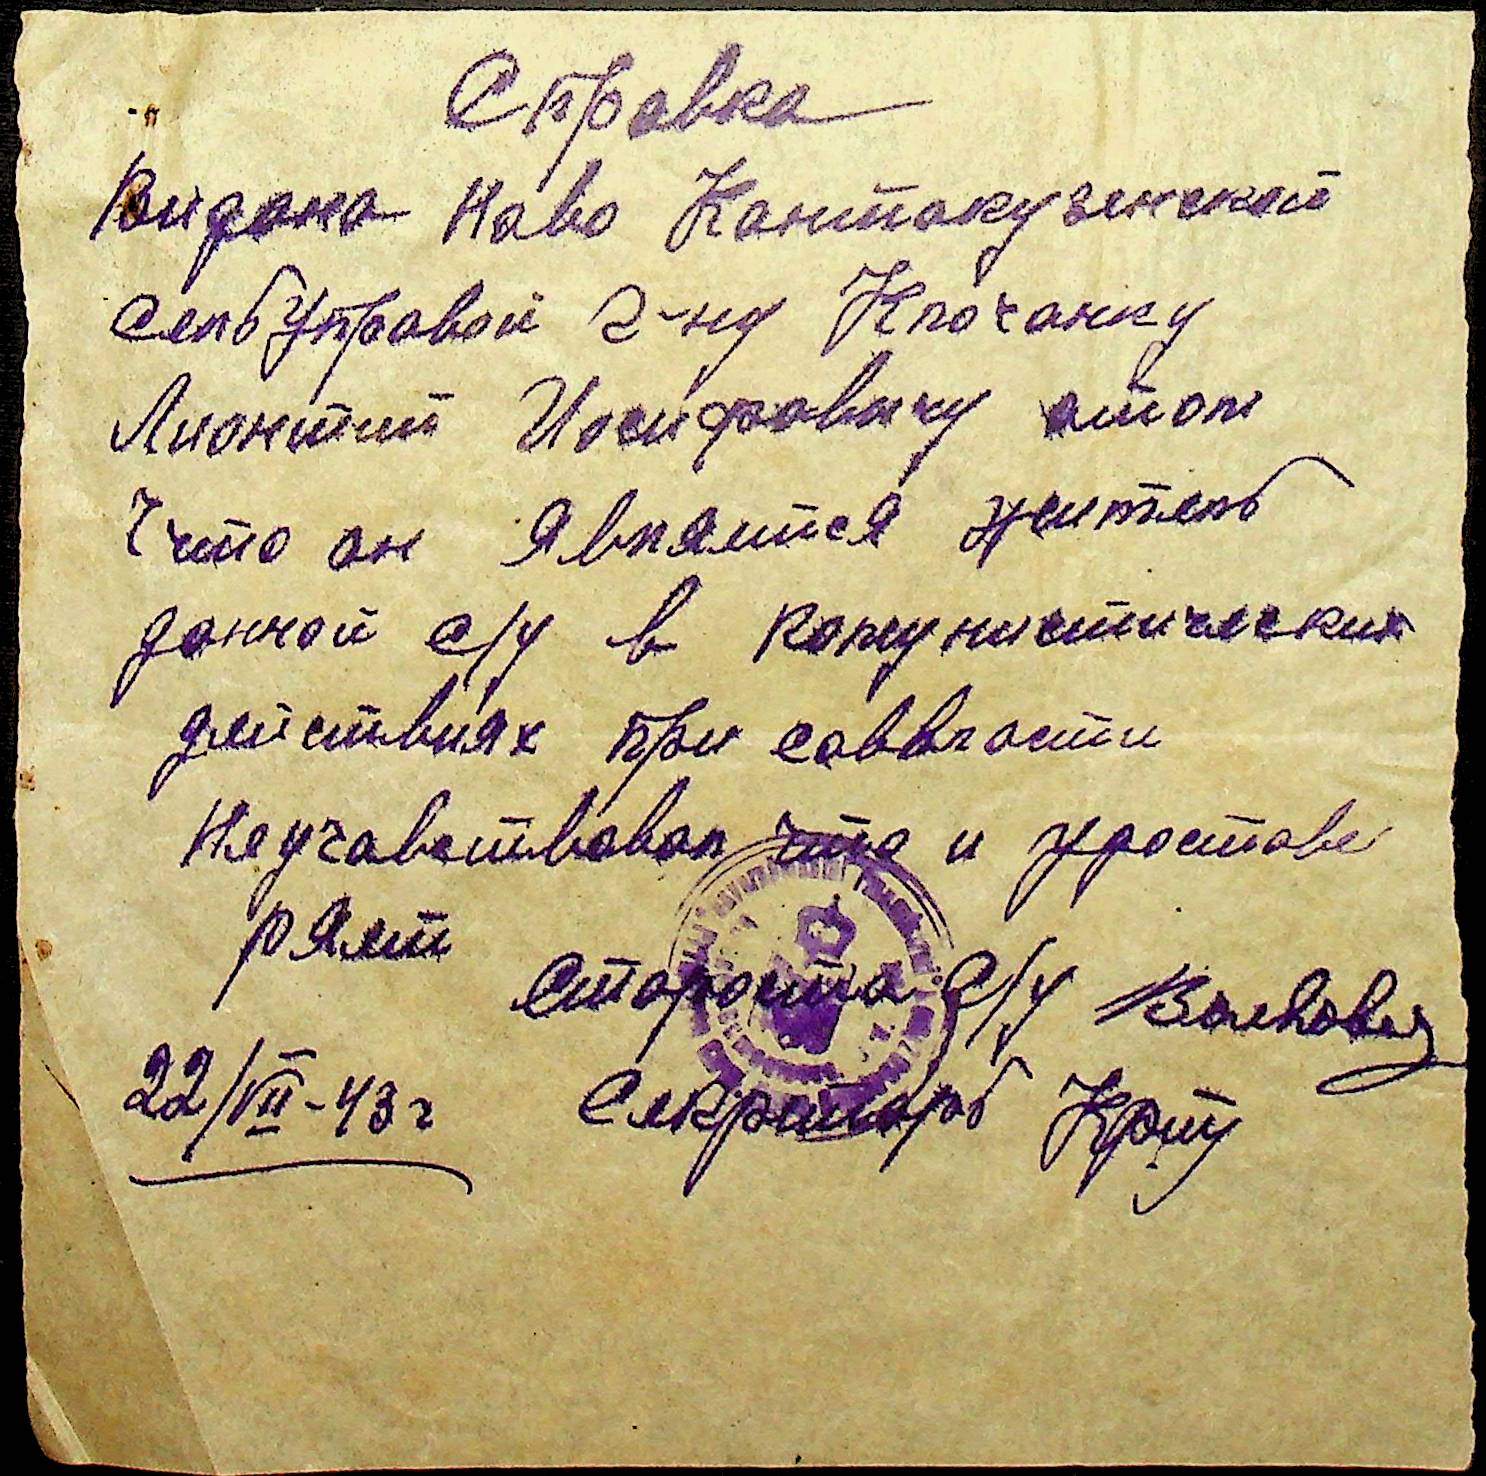 Справка
Видана Ново Кантакузенской
Сельуправой г-ну Клочанку
Лионтий Иосифовичу отом
Что он Является житель
данной с/у в комунистических
действиях при соввласти
Неучавствовал что и удостове
ряет
Староста с/у
22/VII-43 г Секретарь